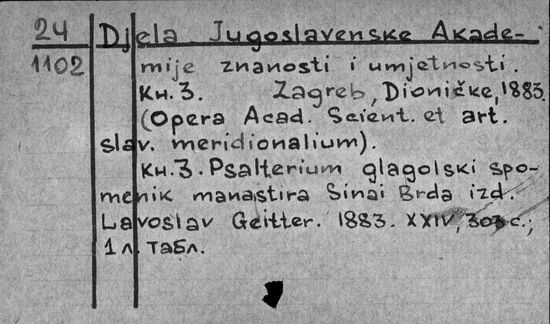 24 Djela Jugoslavenske Akade-
1102 mije znanosti i umjetnosti.
Кн. 3. Zagreb, Dioničke, 1883.
(Opera Acad. Scient. et art.
slav. meridionalium).
Кн. 3. Psalterium glagolski spo-
menik manastira Sinai Brda izd.
Lavoslav Geitter. 1883. XXIV, 303 с.;
1 л. табл.